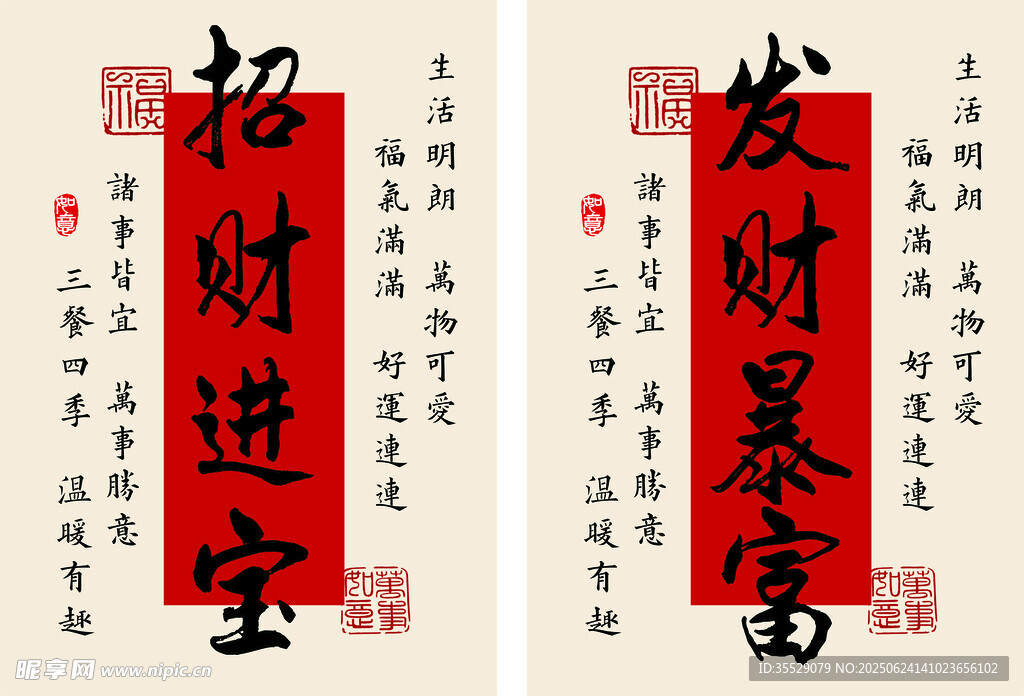 生活明朗 萬物可愛
福氣滿滿 好運連連
招财进宝
福
諸事皆宜 萬事勝意
三餐四季 温暖有趣
如意
萬事如意
生活明朗 萬物可愛
福氣滿滿 好運連連
发财暴富
福
諸事皆宜 萬事勝意
三餐四季 温暖有趣
如意
萬事如意
昵享网 www.nipic.cn
ID:35529079 NO:20250624141023656102